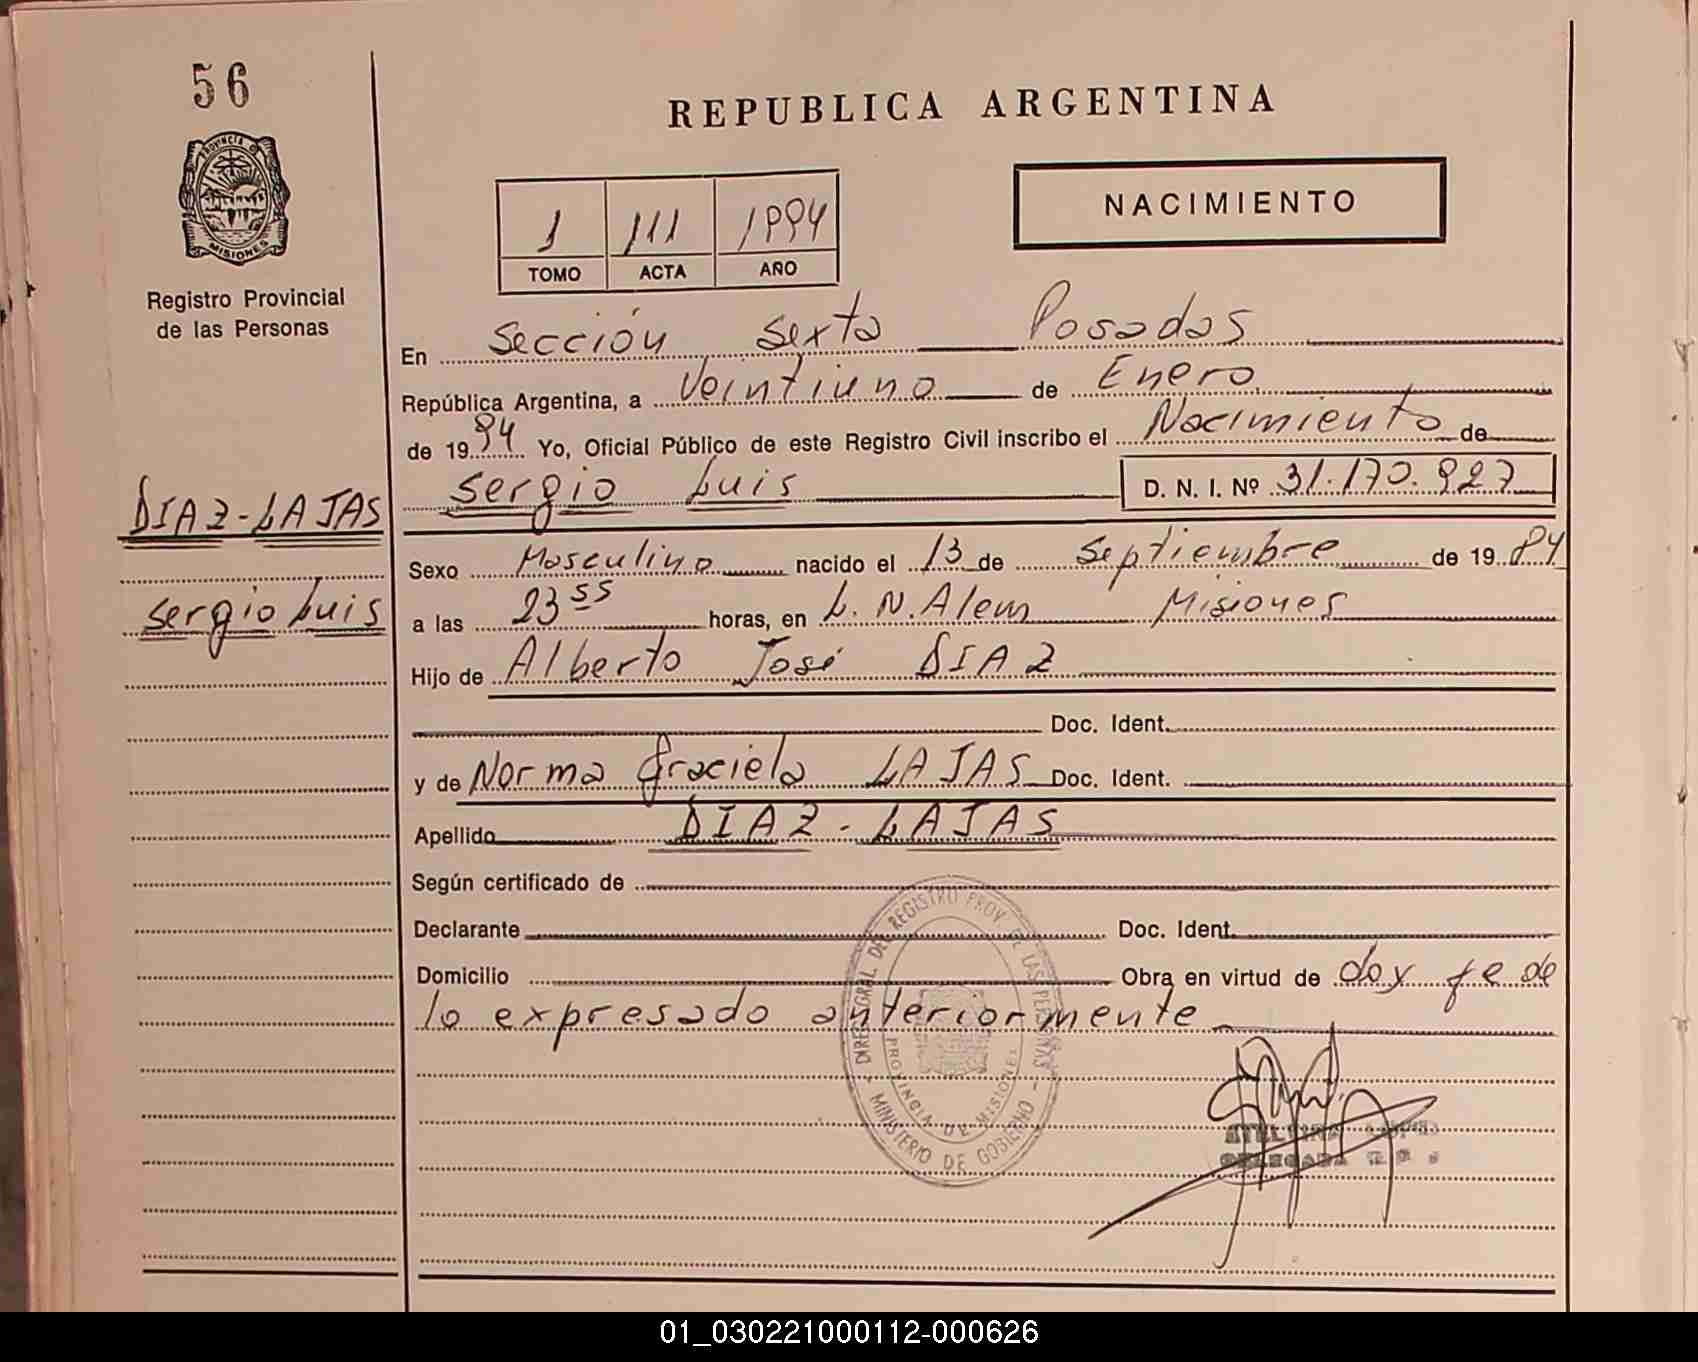 56
REPUBLICA ARGENTINA
PROVINCIA D
MISIONES
Registro Provincial
de las Personas
1 111 1994
TOMO ACTA AÑO
NACIMIENTO
En Sección Sexta Posadas
República Argentina, a Veintiuno de Enero
de 1994 Yo, Oficial Público de este Registro Civil inscribo el Nacimiento de
Sergio Luis D. N. I. Nº 31.170.927
DIAZ-LAJAS
Sergio Luis
Sexo Masculino nacido el 13 de Septiembre de 1984
a las 23 55 horas, en L. N. Alem Misiones
Hijo de Alberto José DIAZ
Doc. Ident.
y de Norma Graciela LAJAS Doc. Ident.
Apellido DIAZ - LAJAS
Según certificado de
Declarante Doc. Ident.
Domicilio Obra en virtud de doy fe de
lo expresado anteriormente
DIREC. GRAL. DEL REGISTRO PROV. DE LAS PERSONAS
PROVINCIA DE MISIONES
MINISTERIO DE GOBIERNO
DELEGADA
01_030221000112-000626